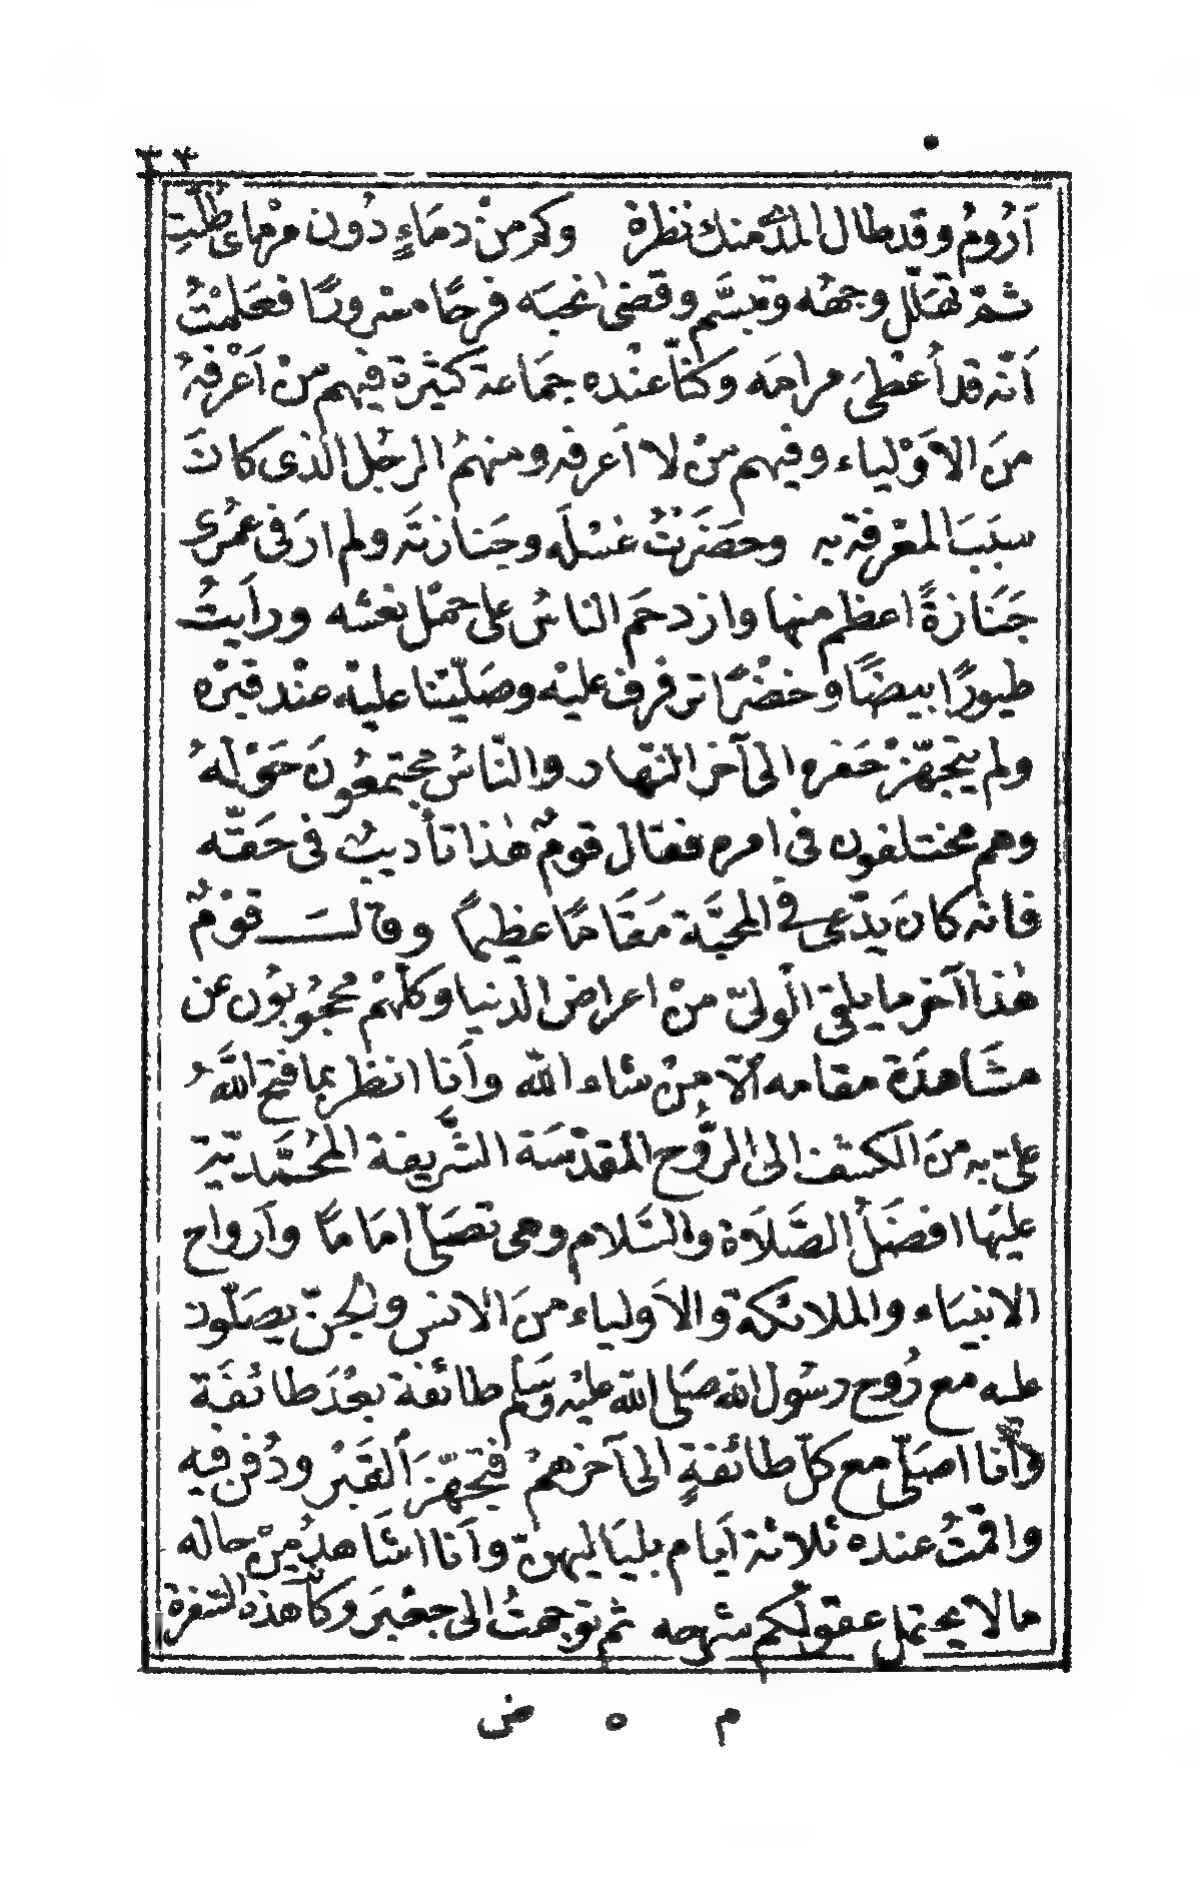 ٣٤
اَرُومُ وقد طال المدٰى منك نظرة وكم مِنْ دماءٍ دُون مرْماى طُلَّتِ
ثمّ تهلّل وجهُه وتبسَّم وقضى نحبَه فرحًا مسْرورًا فعَلِمْتُ
اَنّه قد أُعْطِىَ مرامَه وكنّا عنْده جمَاعة كثيْرة فيهم مِنْ اَعْرفهُ
مِنَ الاَوْلياء وفيهم مِنْ لا اَعرفه ومنهمُ الرجُل الذى كانَ
سبَبَ المعْرفة به وحضَرْتُ غسْلَه وجَنازتَه ولم ارَ فى عمْرى
جَنَازةً اعظم منها وازدحَم الناسُ على حمْل نعْشه ورأيتُ
طيورًا بيضًا وخضْرًا ترفرف عليْه وصَلّيْنا عليْه عنْد قبْره
ولم يتجهّزْ حَفره الى آخر النّهار والنّاسُ مجتمعُونَ حَوْلهُ
وهم مختلفون فى امره فقال قومٌ هٰذا تأديبٌ فى حَقّه
فانّه كان يدّعى فى المحبَّة مَقَامًا عظيمًا وقالــَـ قَوْمٌ
هٰذا آخر ما يلقى الْولىّ مِنْ اعراض الدنيا وكلّهمْ محجُوبُون عن
مشَاهدَة مقامه اِلّا مِنْ شاء الله وأنا انظر بما فتح اللّهُ
علىّ به مِنَ الكشف الى الرُّوح المقدّسَة الشَّريفة المحُمَّديّة
عليْهَا افضَلُ الصَّلَاة والسَّلام وهى تصَلّى امَامًا وأرواح
الانبيَاء والملائكة والاَولياء مِنَ الانْس والجنّ يصَلّون
عليه مع رُوح رسُول الله صَلى الله عليْه وسَلم طائفة بعْدَ طائفَة
وأنا اصَلّى مع كلّ طائفةٍ الى آخرهمْ فتجهّزَ القبْر ودُفن فيه
واقمْتُ عنده ثلاثة اَيام بليَاليهنّ وأنا اشَاهدُ مِنْ حاله
ما لا يحتمل عقولُكم شرْحه ثم توجهتُ الى جعْبَر وكانت هذه السّفرة
م ٥ ض